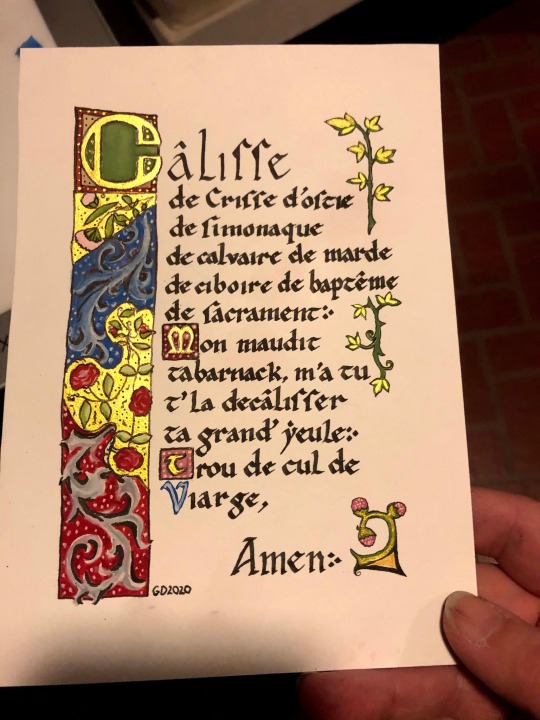 Câlisse
de Crisse d'ostie
de simonaque
de calvaire de marde
de ciboire de baptême
de sacrament:·
Mon maudit
tabarnack, m'a tu
t'La decâlisser
ta grand' ÿeule:·
Trou de cul de
Viarge,
Amen:·
GD2020